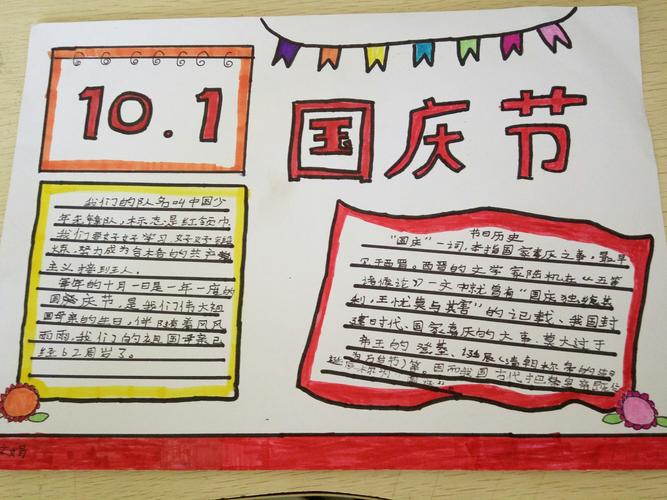 10.1
国庆节
我们的队名叫中国少
年先锋队,标志是红领巾
我们要好好学习,好好锻
炼,努力成为合格的共产
主义接班人。
每年的十月一日是一年一度的
国庆节,是我们伟大祖
国母亲的生日,伴随着风风
雨雨,我们的祖国母亲已
经62周岁了。
节日历史
“国庆”一词,本指国家喜庆之事,最早
见于西晋。西晋的文学家陆机在《五等
诸侯论》一文中就曾有“国庆独飨其
利,主忧莫与其害”的记载、我国封
建时代、国家喜庆的大事,莫大过于
帝王的登基、诞辰(清朝称皇帝的生日
等。因而我国古代把皇帝